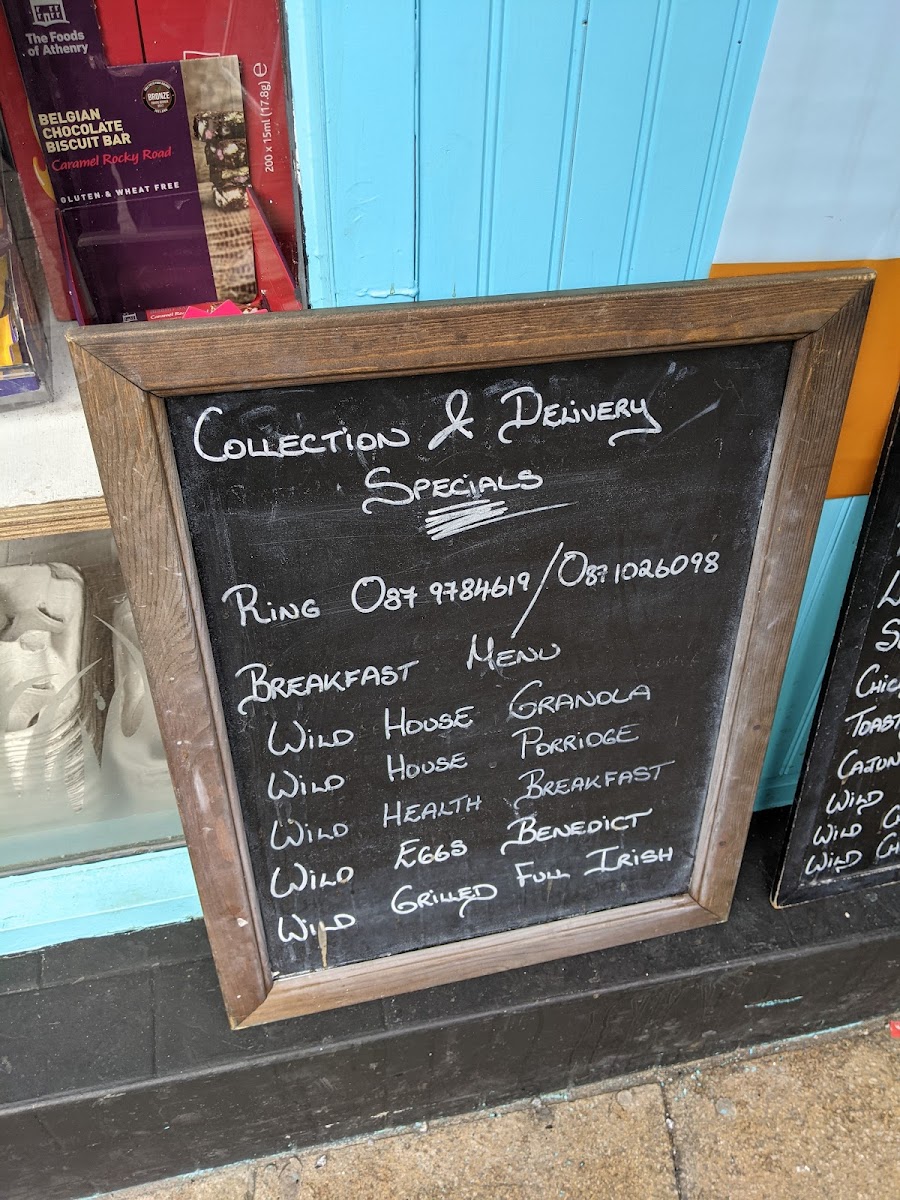 The Foods
of Athenry
BELGIAN
CHOCOLATE
BISCUIT BAR
Caramel Rocky Road
GLUTEN & WHEAT FREE
BRONZE
200 x 15ml (17.8g) e
COLLECTION & DELIVERY
SPECIALS
RING 087 9784619/0871026098
BREAKFAST MENU
WILD HOUSE GRANOLA
WILD HOUSE PORRIDGE
WILD HEALTH BREAKFAST
WILD EGGS BENEDICT
WILD GRILLED FULL IRISH
TOAST
CAJUN
WILD
WILD
WILD